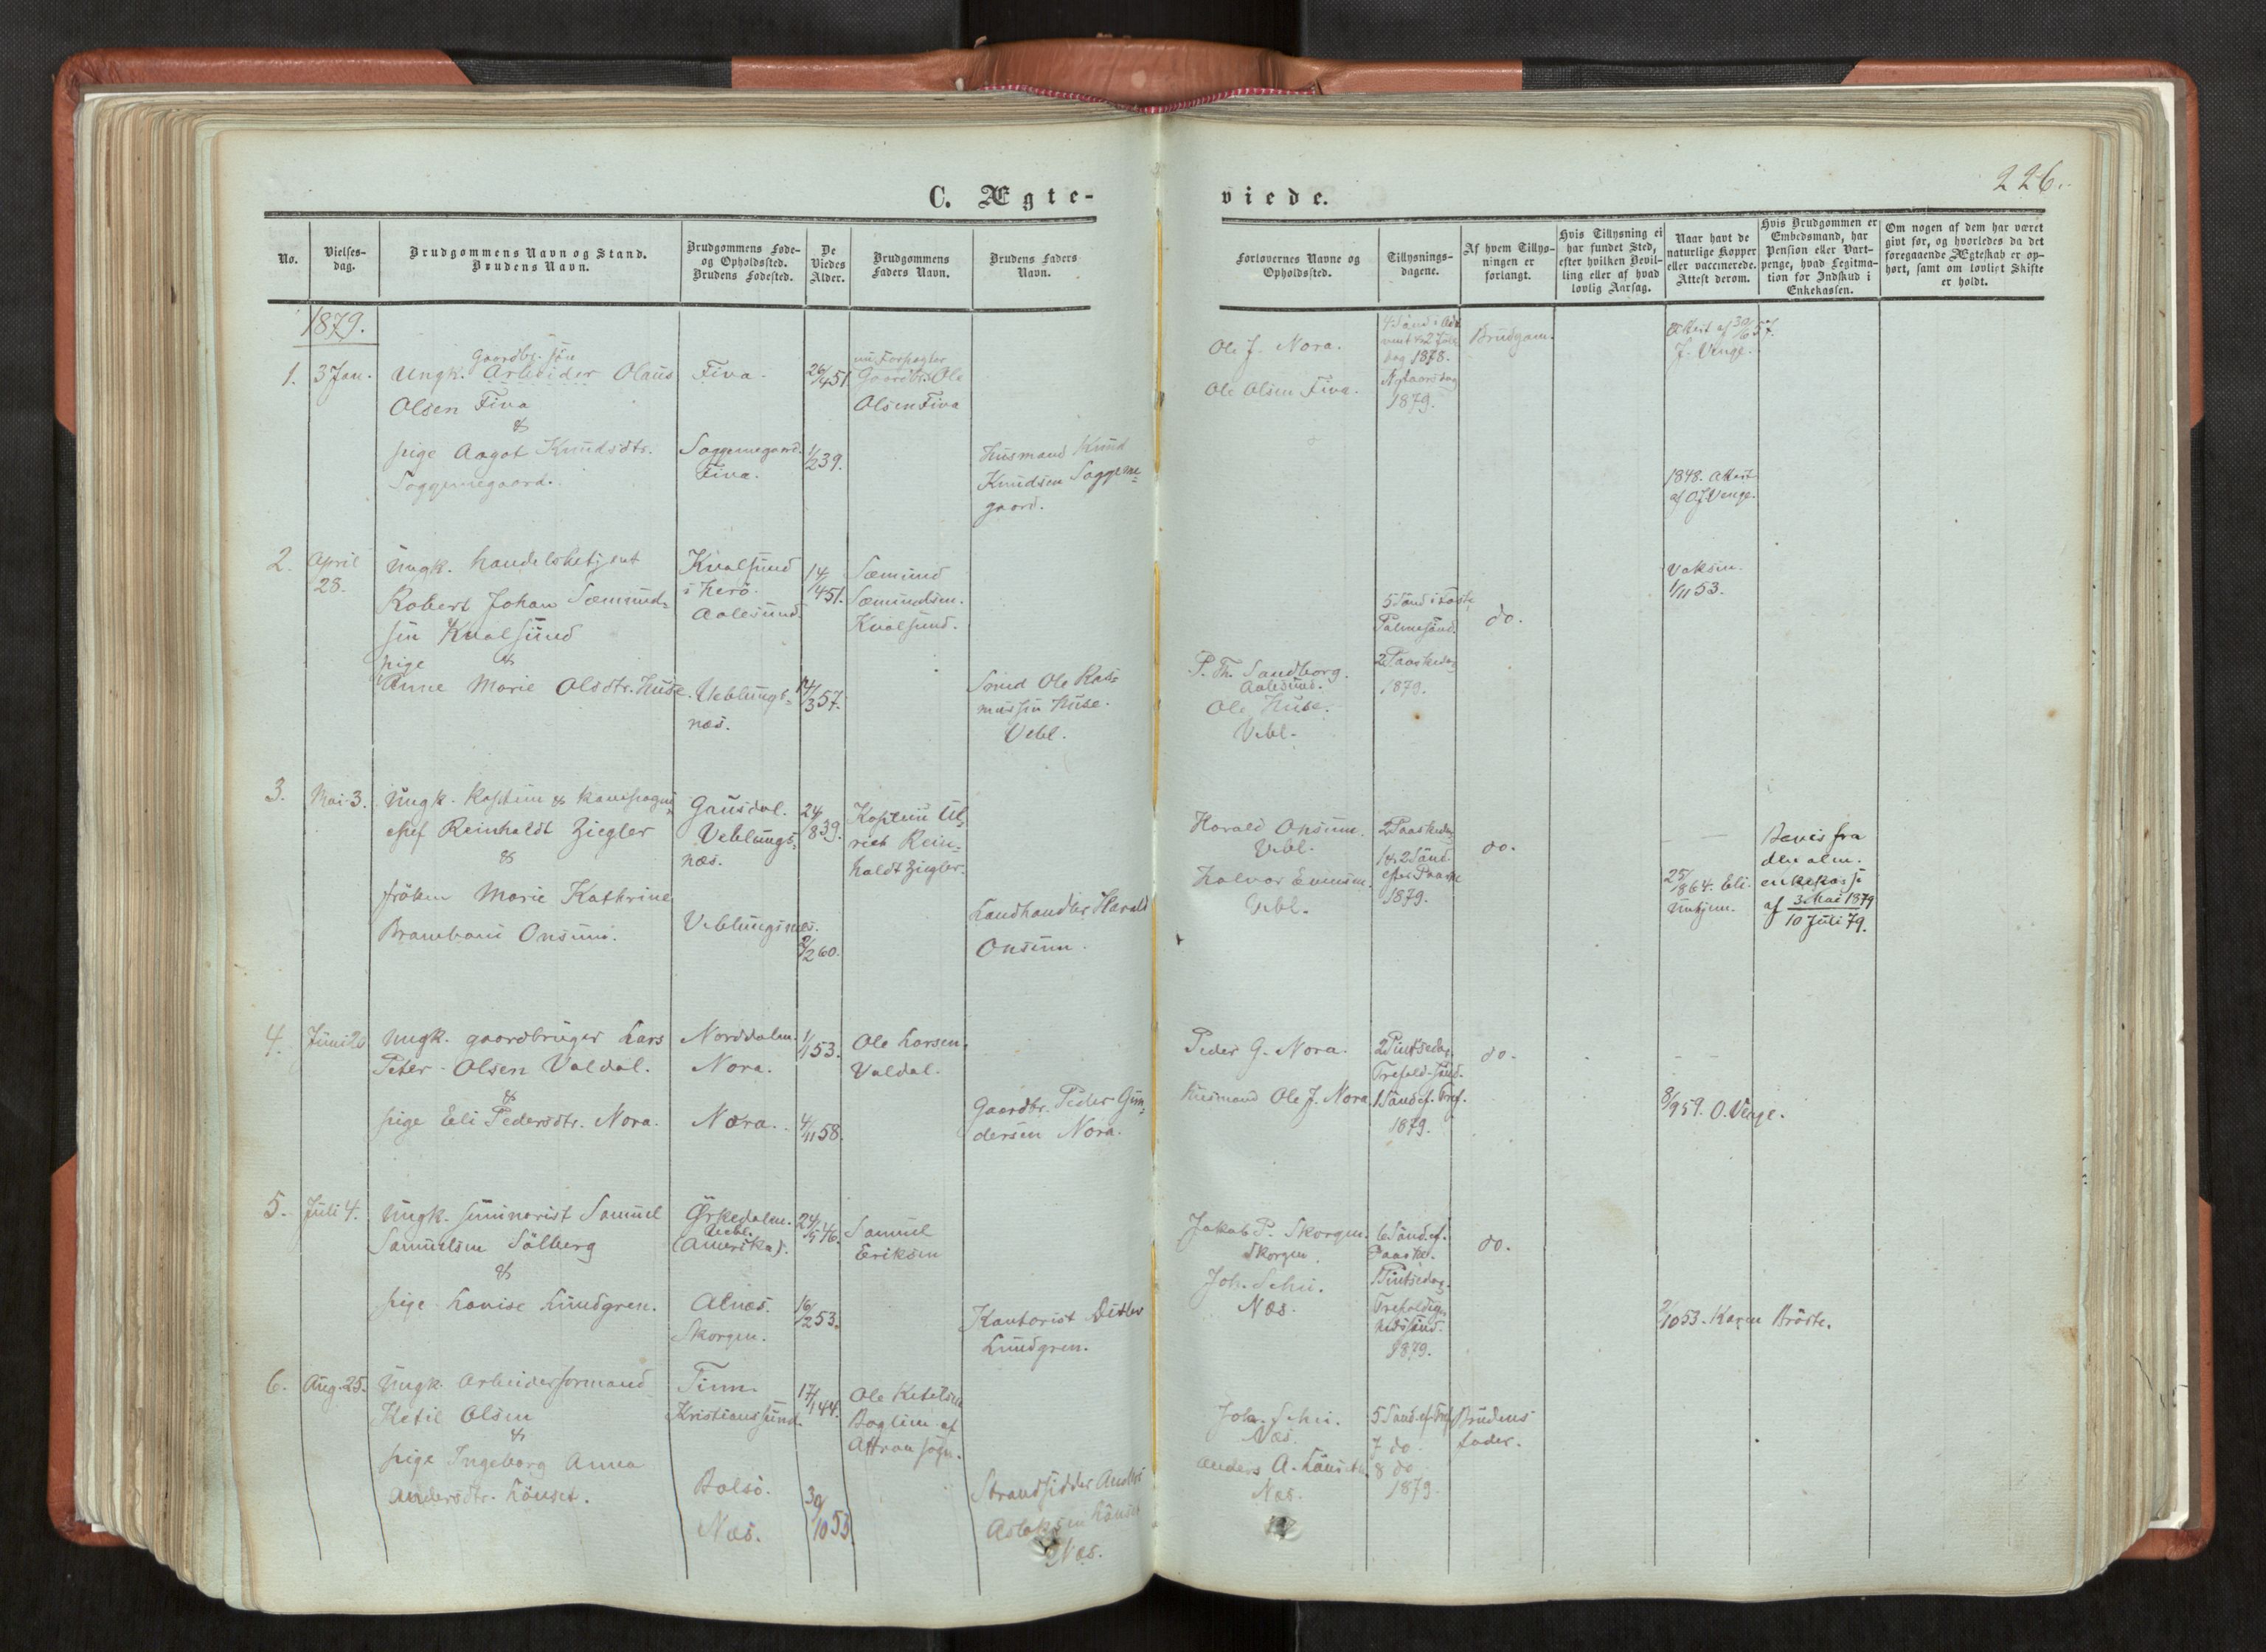 226.
C. Ægte-
viede.
No.
Vielses-
dag.
Brudgommens Navn og Stand.
Brudens Navn.
Brudgommens Føde-
og Opholdssted.
Brudens Fødested.
De
Viedes
Alder.
Brudgommens
Faders Navn.
Brudens Faders
Navn.
Forlovernes Navne og
Opholdssted.
Tillysnings-
dagene.
Af hvem Tillys-
ningen er
forlangt.
Hvis Tillysning ei
har fundet Sted,
efter hvilken Bevil-
ling eller af hvad
lovlig Aarsag.
Naar havt de
naturlige Kopper
eller vaccinerede.
Attest derom.
Hvis Brudgommen er
Embedsmand, har
Pension eller Vart-
penge, hvad Legitima-
tion for Indskud i
Enkekassen.
Om nogen af dem har været
givt før, og hvorledes da det
foregaaende Ægteskab er op-
hørt, samt om lovligt Skifte
er holdt.
1879.
1.
3 Jan.
Gaardbr. søn
Ungk. Arbeider Olaus
Olsen Fiva
&
pige Aagot Knudsdtr.
Soggemegaard.
Fiva.
Soggemegaard.
Fiva.
26/4 51
1/2 39.
nu Forpagter
Gaardbr. Ole
Olsen Fiva
Husmand Knud
Knudsen Soggeme-
gaard.
Ole J. Nora.
Ole Olsen Fiva.
4 Sønd i Ad-
vent & 2 Jule
dag 1878.
Nytaarsdag
1879.
Brudgom.
Attest af 30/6 57.
J. Venge.
1848. Attest
af O J Venge.
2.
April
28.
Ungk. handelsbetjent
Robert Johan Sæmund-
sen Kvalsund
&
pige
Anne Marie Olsdtr. Huse.
Kvalsund
i Herø.
Aalesund.
Veblungs-
næs.
14/4 51.
14/3 57.
Sæmund
Sæmundsen.
Kvalsund.
Smed Ole Ras-
mussen Huse.
Vebl.
P. Th. Sandborg.
Aalesund.
Ole Huse.
Vebl.
5 Sønd i Faste
Palmesønd.
2 Paaskedag
1879.
do.
Vaksin.
1/11 53.
3.
Mai 3.
Ungk. Kaptein & kompagni
chef Reinholdt Ziegler
&
frøken Marie Kathrine
Onsum.
Gausdal.
Veblungs-
næs.
Veblungsnæs.
24/8 39.
2/2 60.
Kaptein Ul-
rick Rein-
holdt Ziegler.
Landhandler Harald
Onsum.
Harald Onsum.
Vebl.
Halvor Evensen.
Vebl.
2 Paaskedag
1 & 2 Sønd.
efter Paaske
1879.
do.
—
25/ 1864. Eli
Unhjem.
Bevis fra
den alm.
enkekasse
af 3 Mai 1879
10 Juli 79.
4.
Juni 20
Ungk. gaardbruger Lars
Peter Olsen Valdal.
&
pige Eli Pedersdtr. Nora.
Norddalen.
Nora.
Nora.
1/1 53.
4/11 58.
Ole Larsen
Valdal.
Gaardbr. Peder Gun-
dersen Nora.
Peder G. Nora.
Husmand Ole J. Nora
2 Pintsedag.
Trefold. Sønd.
1 Sønd ef. Tref.
1879.
do.
8/9 59. O. Venge.
5.
Juli 4.
Ungk. seminarist Samuel
Samuelsen Sölberg
&
pige Lovise Lundgren.
Ørkedalen.
Vebl.
(Amerika).
Alnæs.
Skorgen.
24/5 46.
16/2 53.
Samuel
Eriksen
Kantorist Didler
Lundgren.
Jakob P. Skorgen.
Skorgen.
Joh. Schei.
Næs.
6 Sønd. ef.
Paaske.
1 Pintsedag.
Trefoldig-
hedssønd.
1879.
do.
2/10 53. Karen Brøste.
6.
Aug. 25.
Ungk. Arbeiderformand
Ketil Olsen
&
pige Ingeborg Anna
Andersdtr. Lønset.
Tinn.
Kristianssund.
Bolsø.
Næs.
17/1 44.
30/10 53.
Ole Ketilsen
Boglien af
Attrau sogn.
Strandsidder Anders
Aslaksen Lønset
Næs.
Joh. Schei.
Næs.
Anders A. Lønset.
Næs.
5 Sønd. ef. Tref.
7 do.
8 do
1879.
Brudens
fader.